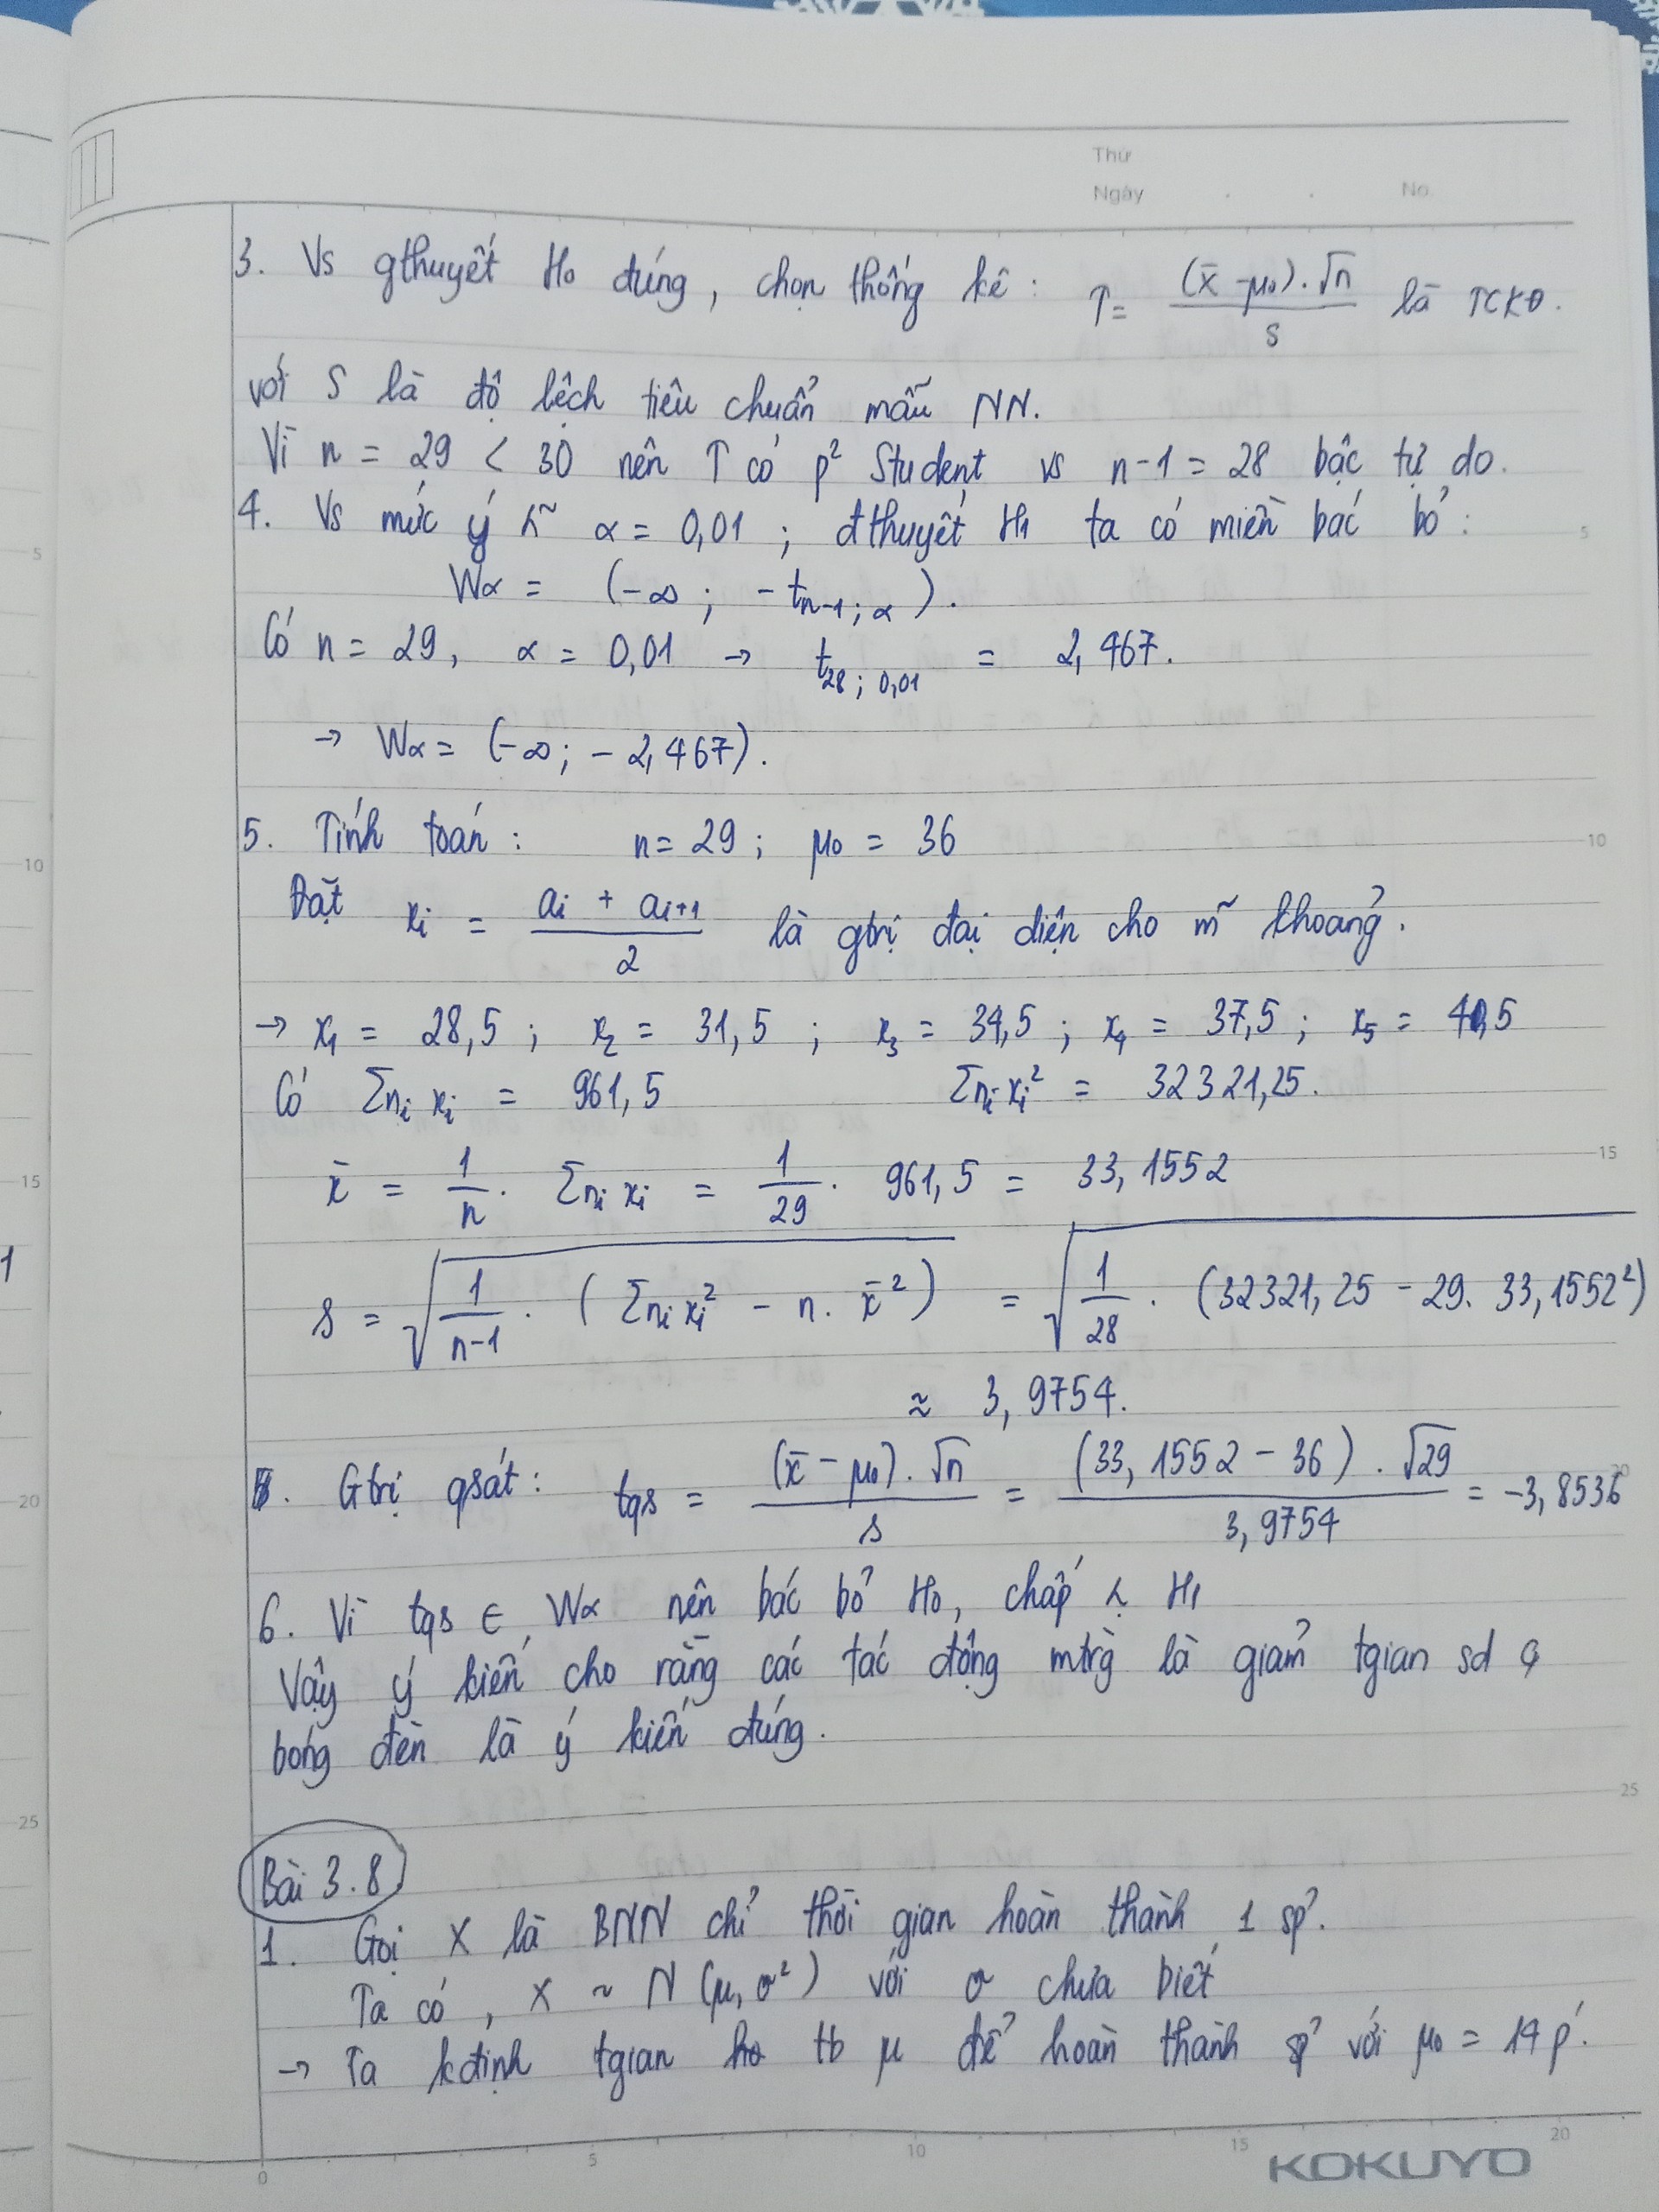 Thứ
Ngày . . No.
3. Vs gthuyết H₀ đúng, chọn thống kê : T = (x̄ - μ₀).√n / S là TCKĐ.
với S là độ lệch tiêu chuẩn mẫu NN.
Vì n = 29 < 30 nên T có p² Student vs n-1 = 28 bậc tự do.
4. Vs mức ý ñ α = 0,01 ; đthuyết H₁ ta có miền bác bỏ :
Wα = (-∞ ; - t n-1 ; α ) .
Có n = 29, α = 0,01 → t 28 ; 0,01 = 2,467.
→ Wα = (-∞; - 2,467).
5. Tính toán : n = 29 ; μ₀ = 36
Đặt xᵢ = (aᵢ + aᵢ₊₁) / 2 là gtrị đại diện cho m~ khoảng.
→ x₁ = 28,5 ; x₂ = 31,5 ; x₃ = 34,5 ; x₄ = 37,5 ; x₅ = 40,5
Có Σnᵢ xᵢ = 961,5 Σnᵢ xᵢ² = 32321,25.
x̄ = 1/n . Σnᵢ xᵢ = 1/29 . 961,5 = 33,1552
s = √(1/(n-1) . ( Σnᵢ xᵢ² - n. x̄²)) = √(1/28 . (32321,25 - 29. 33,1552²))
≈ 3,9754.
. Gtrị qsát : tqs = (x̄ - μ₀).√n / s = (33,1552 - 36) . √29 / 3,9754 = -3,8536
6. Vì tqs ∈ Wα nên bác bỏ H₀, chấp H₁
Vậy ý kiến cho rằng các tác động mtrg̀ là giảm tgian sd
bóng đèn là ý kiến đúng.
Bài 3.8
1. Gọi X là BNN chỉ thời gian hoàn thành 1 sp̉.
Ta có, X ~ N (μ, σ²) với σ chưa biết
→ Ta kđịnh tgian tb μ để hoàn thành sp̉ với μ₀ = 14 p´.
5
10
15
20
25
5
10
15
20
25
0 5 10 15 20
KOKUYO
1